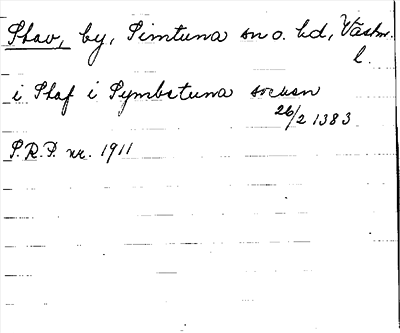 Skav, by, Simtuna sn o. hd, Västm.
l.
i Skaf i Symbetuna socken
26/2 1383
S.R.P. nr. 1911